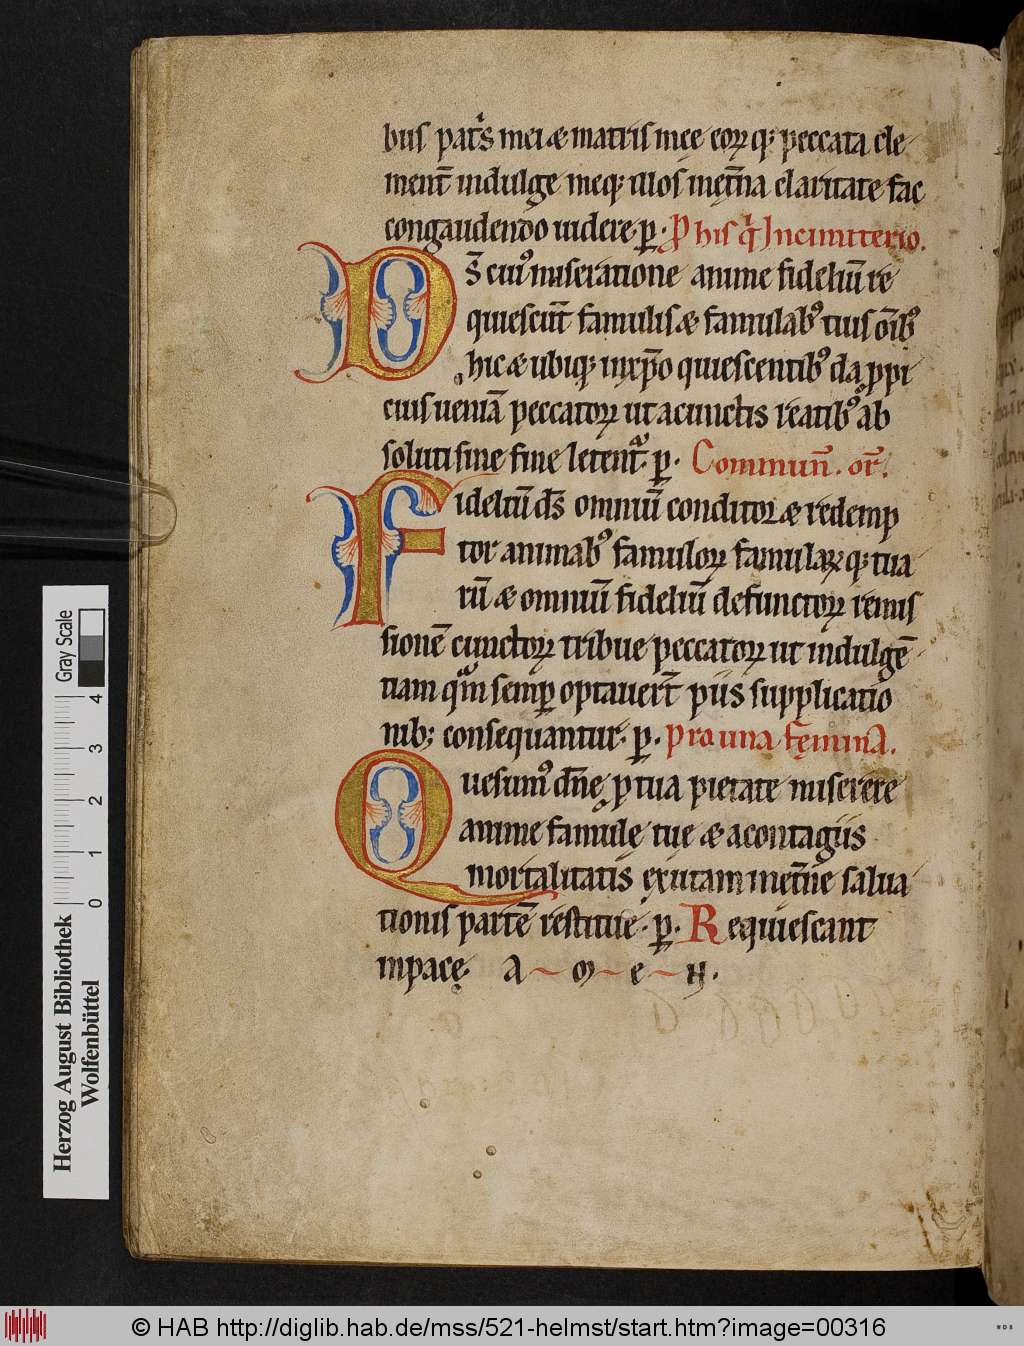 bus pat̾s mei & matris meę eoꝝ q; peccata cle
ment̄ indulge meq; illos inęt̄na claritate fac
congaudendo uidere· ꝑ· P his q̇ Incimiterio.
Ds̄ cui᷒ miseratione anime fidelium̄ re
quiescūt famulis & famulab᷒ tuis om̄ib᷒
hic & ubiq; inxp̄o quiescentib᷒ da ꝓpi
cius ueniā peccatoꝝ ut acunctis reatib᷒ ab
soluti sine fine letent᷑· ꝑ· Commun̄. or̄.
Fideliū ds̄ omniū conditor & redemp
tor animab᷒ famuloꝝ famulaꝝ q; tua
rū & omniū fideliū defunctoꝝ remis
sionē cunctoꝝ tribue peccatoꝝ ut indulgē
tiam quā semꝑ optauer̄t piis supplicatio
nib; consequantur· ꝑ· pro una fęmina.
Quesum᷒ dn̄e ꝓ tua pietate miserere
anime famulę tuę & acontagiis
mortalitatis exutam inęt̄ne salua
tionis partē restitue· ꝑ· Requiescant
inpacę· A m e n.
Herzog August Bibliothek
Wolfenbüttel
0 1 2 3 4
Gray Scale
© HAB http://diglib.hab.de/mss/521-helmst/start.htm?image=00316